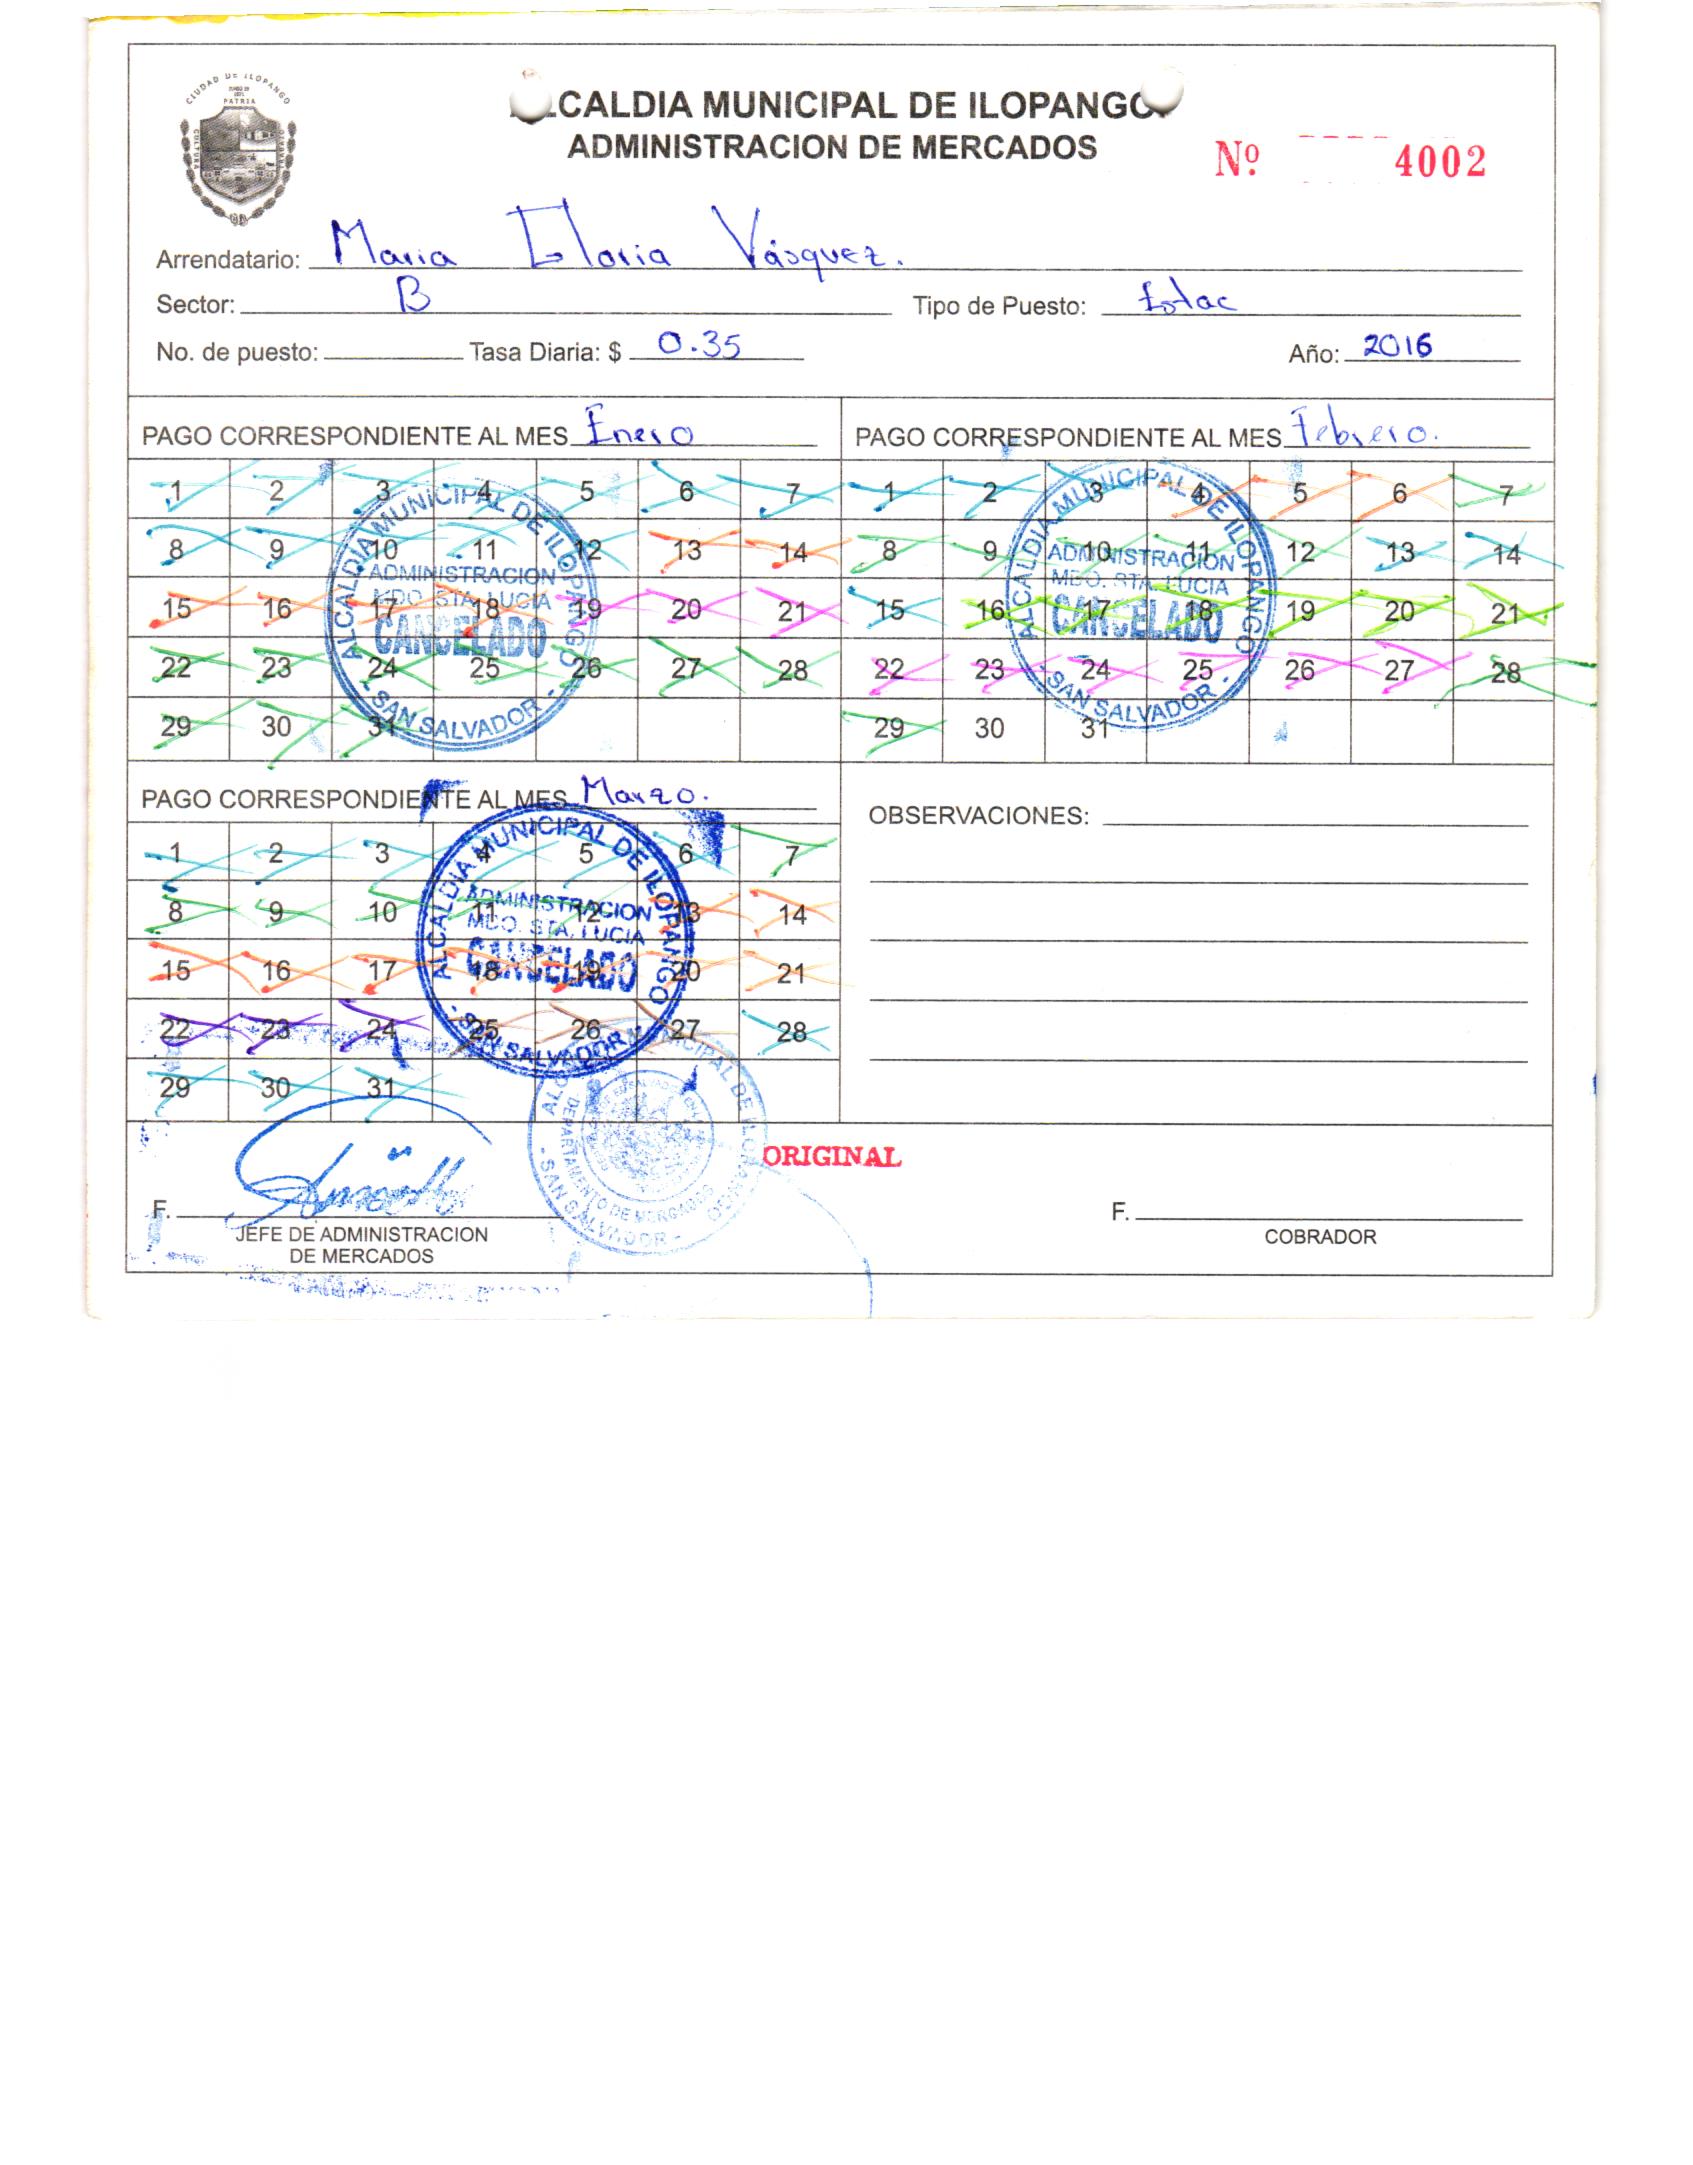 CIUDAD DE ILOPANGO
PATRIA
CULTURA
ALCALDIA MUNICIPAL DE ILOPANGO
ADMINISTRACION DE MERCADOS
Nº 4002
Arrendatario: Maria Gloria Vásquez.
Sector: B Tipo de Puesto: Estac
No. de puesto: Tasa Diaria: $ 0.35 Año: 2016
PAGO CORRESPONDIENTE AL MES Enero
1 2 3 4 5 6 7
8 9 10 11 12 13 14
15 16 17 18 19 20 21
22 23 24 25 26 27 28
29 30 31
ALCALDIA MUNICIPAL DE ILOPANGO
ADMINISTRACION
MDO. STA. LUCIA
CANCELADO
- SAN SALVADOR -
PAGO CORRESPONDIENTE AL MES Febrero.
1 2 3 4 5 6 7
8 9 10 11 12 13 14
15 16 17 18 19 20 21
22 23 24 25 26 27 28
29 30 31
ALCALDIA MUNICIPAL DE ILOPANGO
ADMINISTRACION
MDO. STA. LUCIA
CANCELADO
- SAN SALVADOR -
PAGO CORRESPONDIENTE AL MES Marzo.
1 2 3 4 5 6 7
8 9 10 11 12 13 14
15 16 17 18 19 20 21
22 23 24 25 26 27 28
29 30 31
ALCALDIA MUNICIPAL DE ILOPANGO
ADMINISTRACION
MDO. STA. LUCIA
CANCELADO
- SAN SALVADOR -
OBSERVACIONES:
DEPARTAMENTO DE MERCADOS
- SAN SALVADOR -
ORIGINAL
F.
JEFE DE ADMINISTRACION
DE MERCADOS
F.
COBRADOR